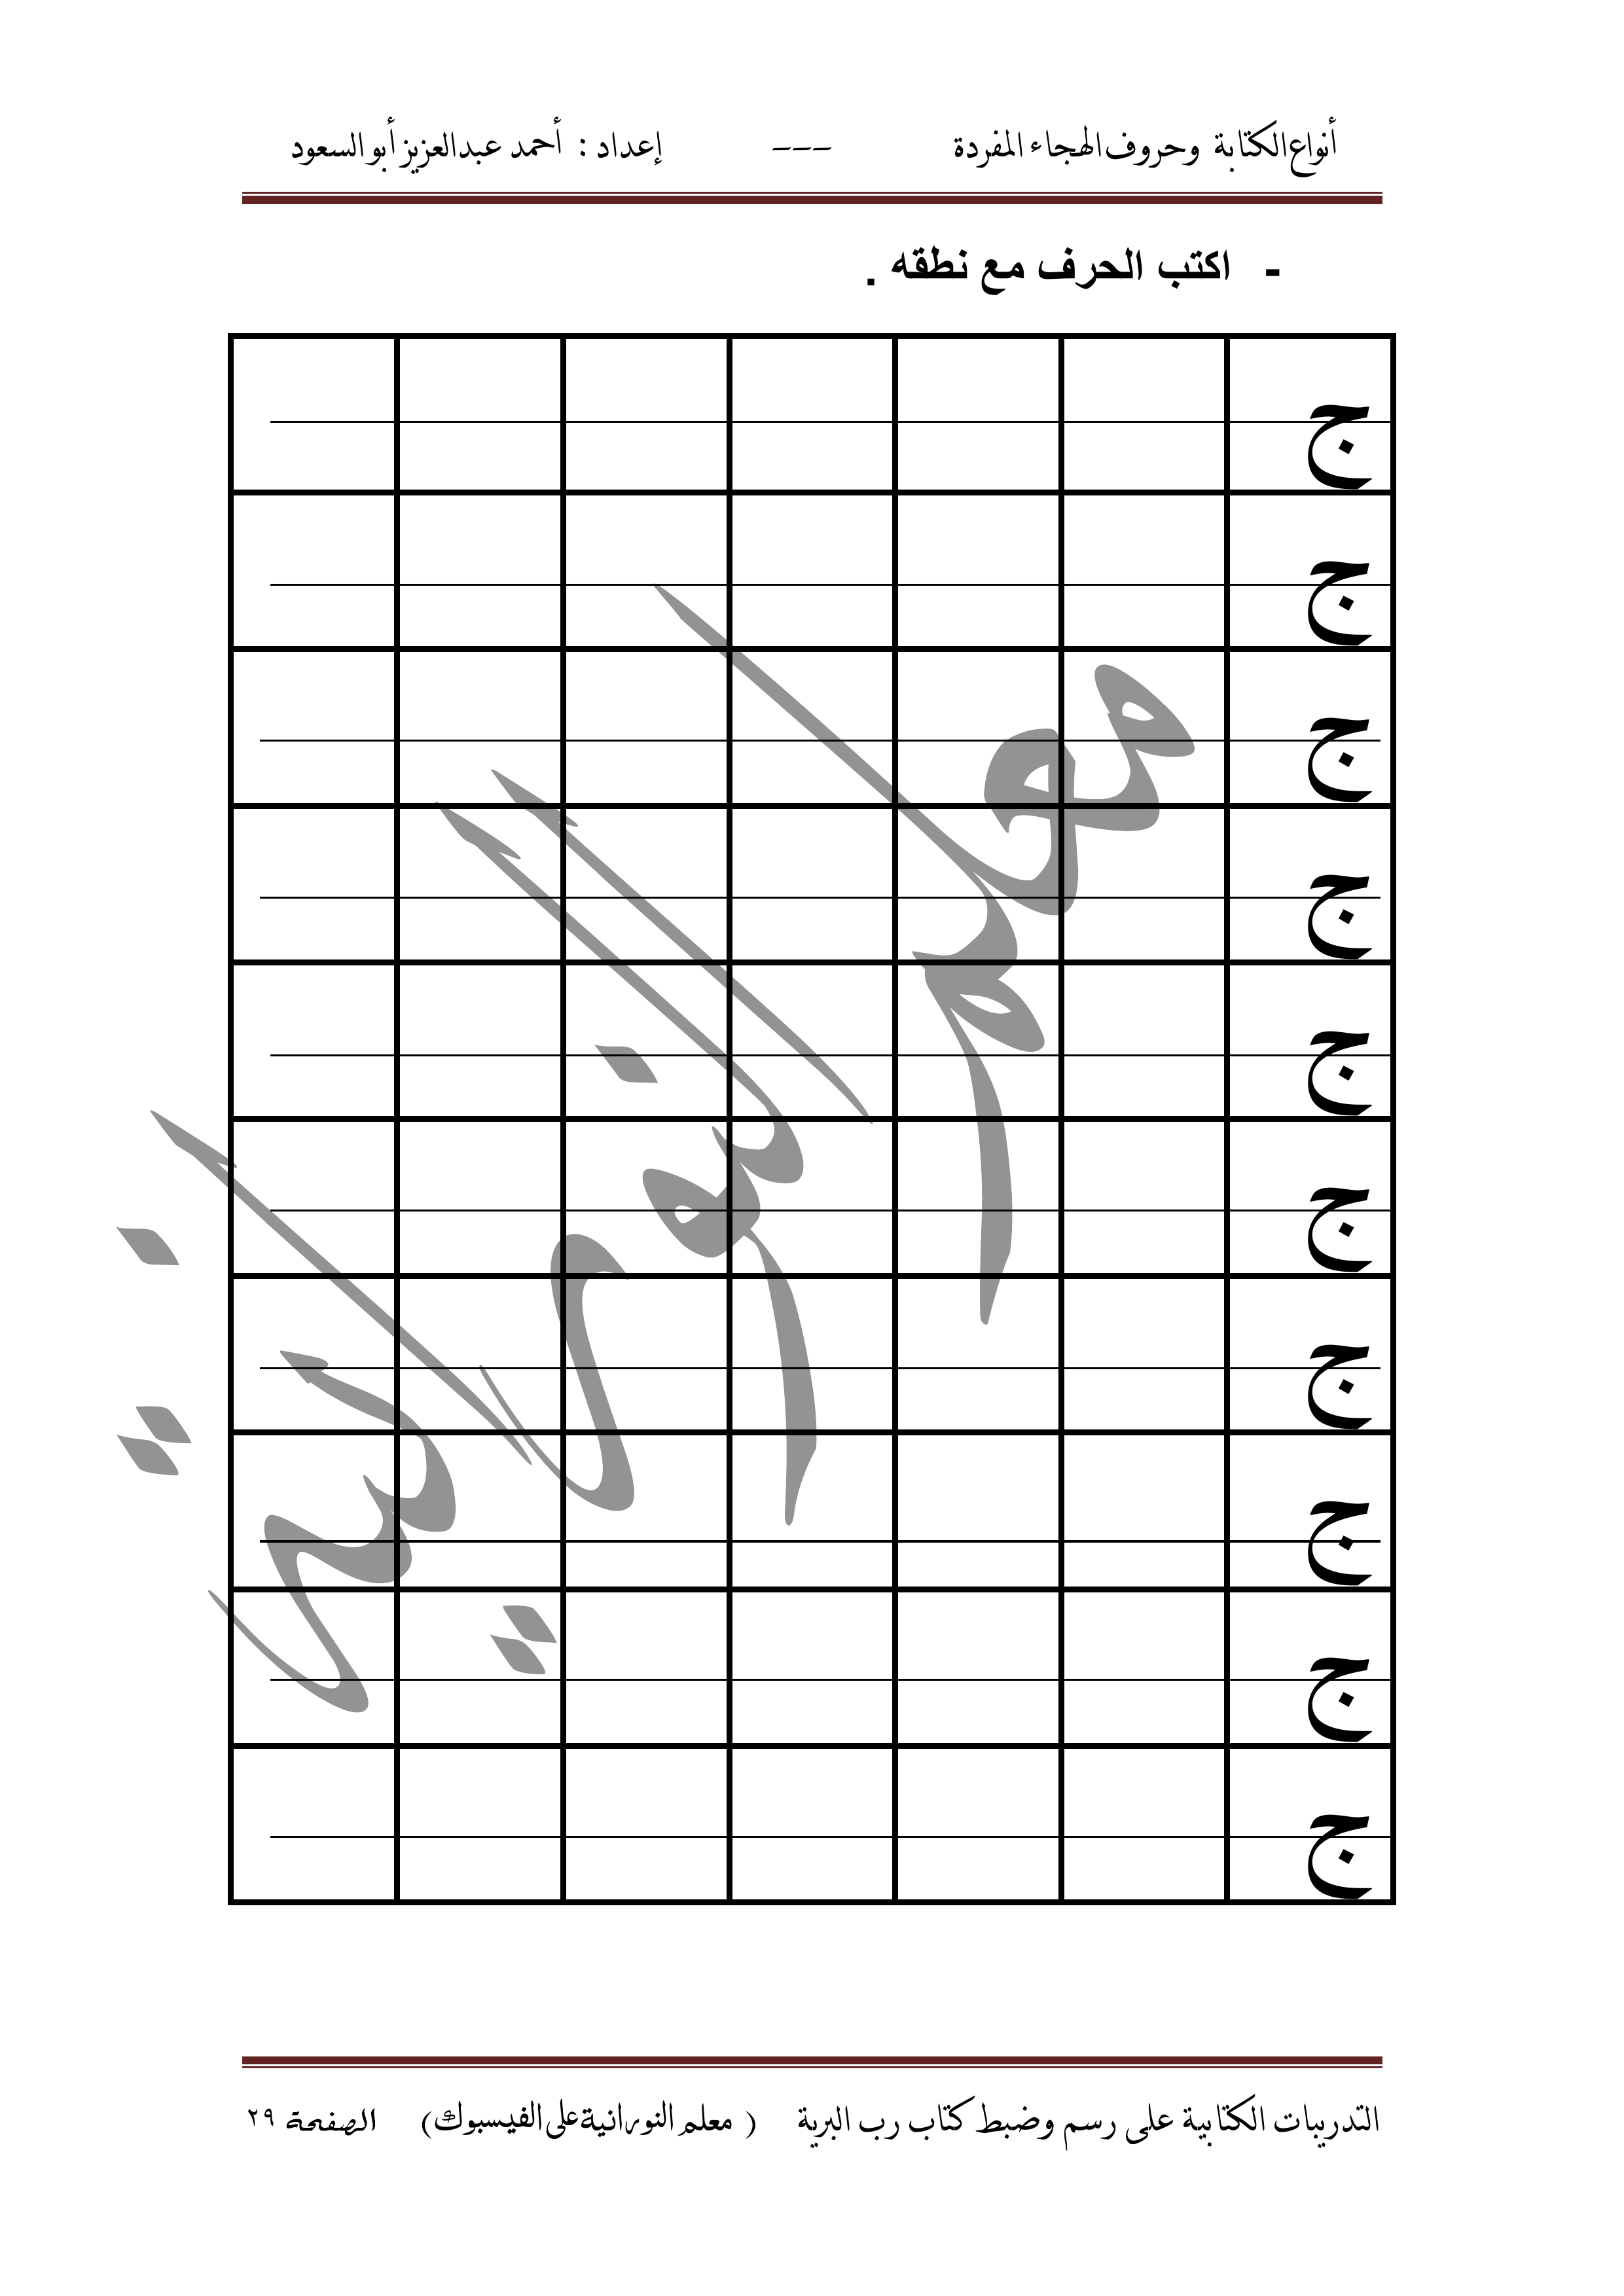 أنواع الكتابة وحروف الهجاء المفردة --- إعداد : أحمد عبدالعزيز أبو السعود
- اكتب الحرف مع نطقه .
ج
ج
ج
ج
ج
ج
ج
ج
ج
ج
معلم النورانية
التدريبات الكتابية على رسم وضبط كتاب رب البرية ( معلم النورانية على الفيسبوك ) الصفحة ٢٩